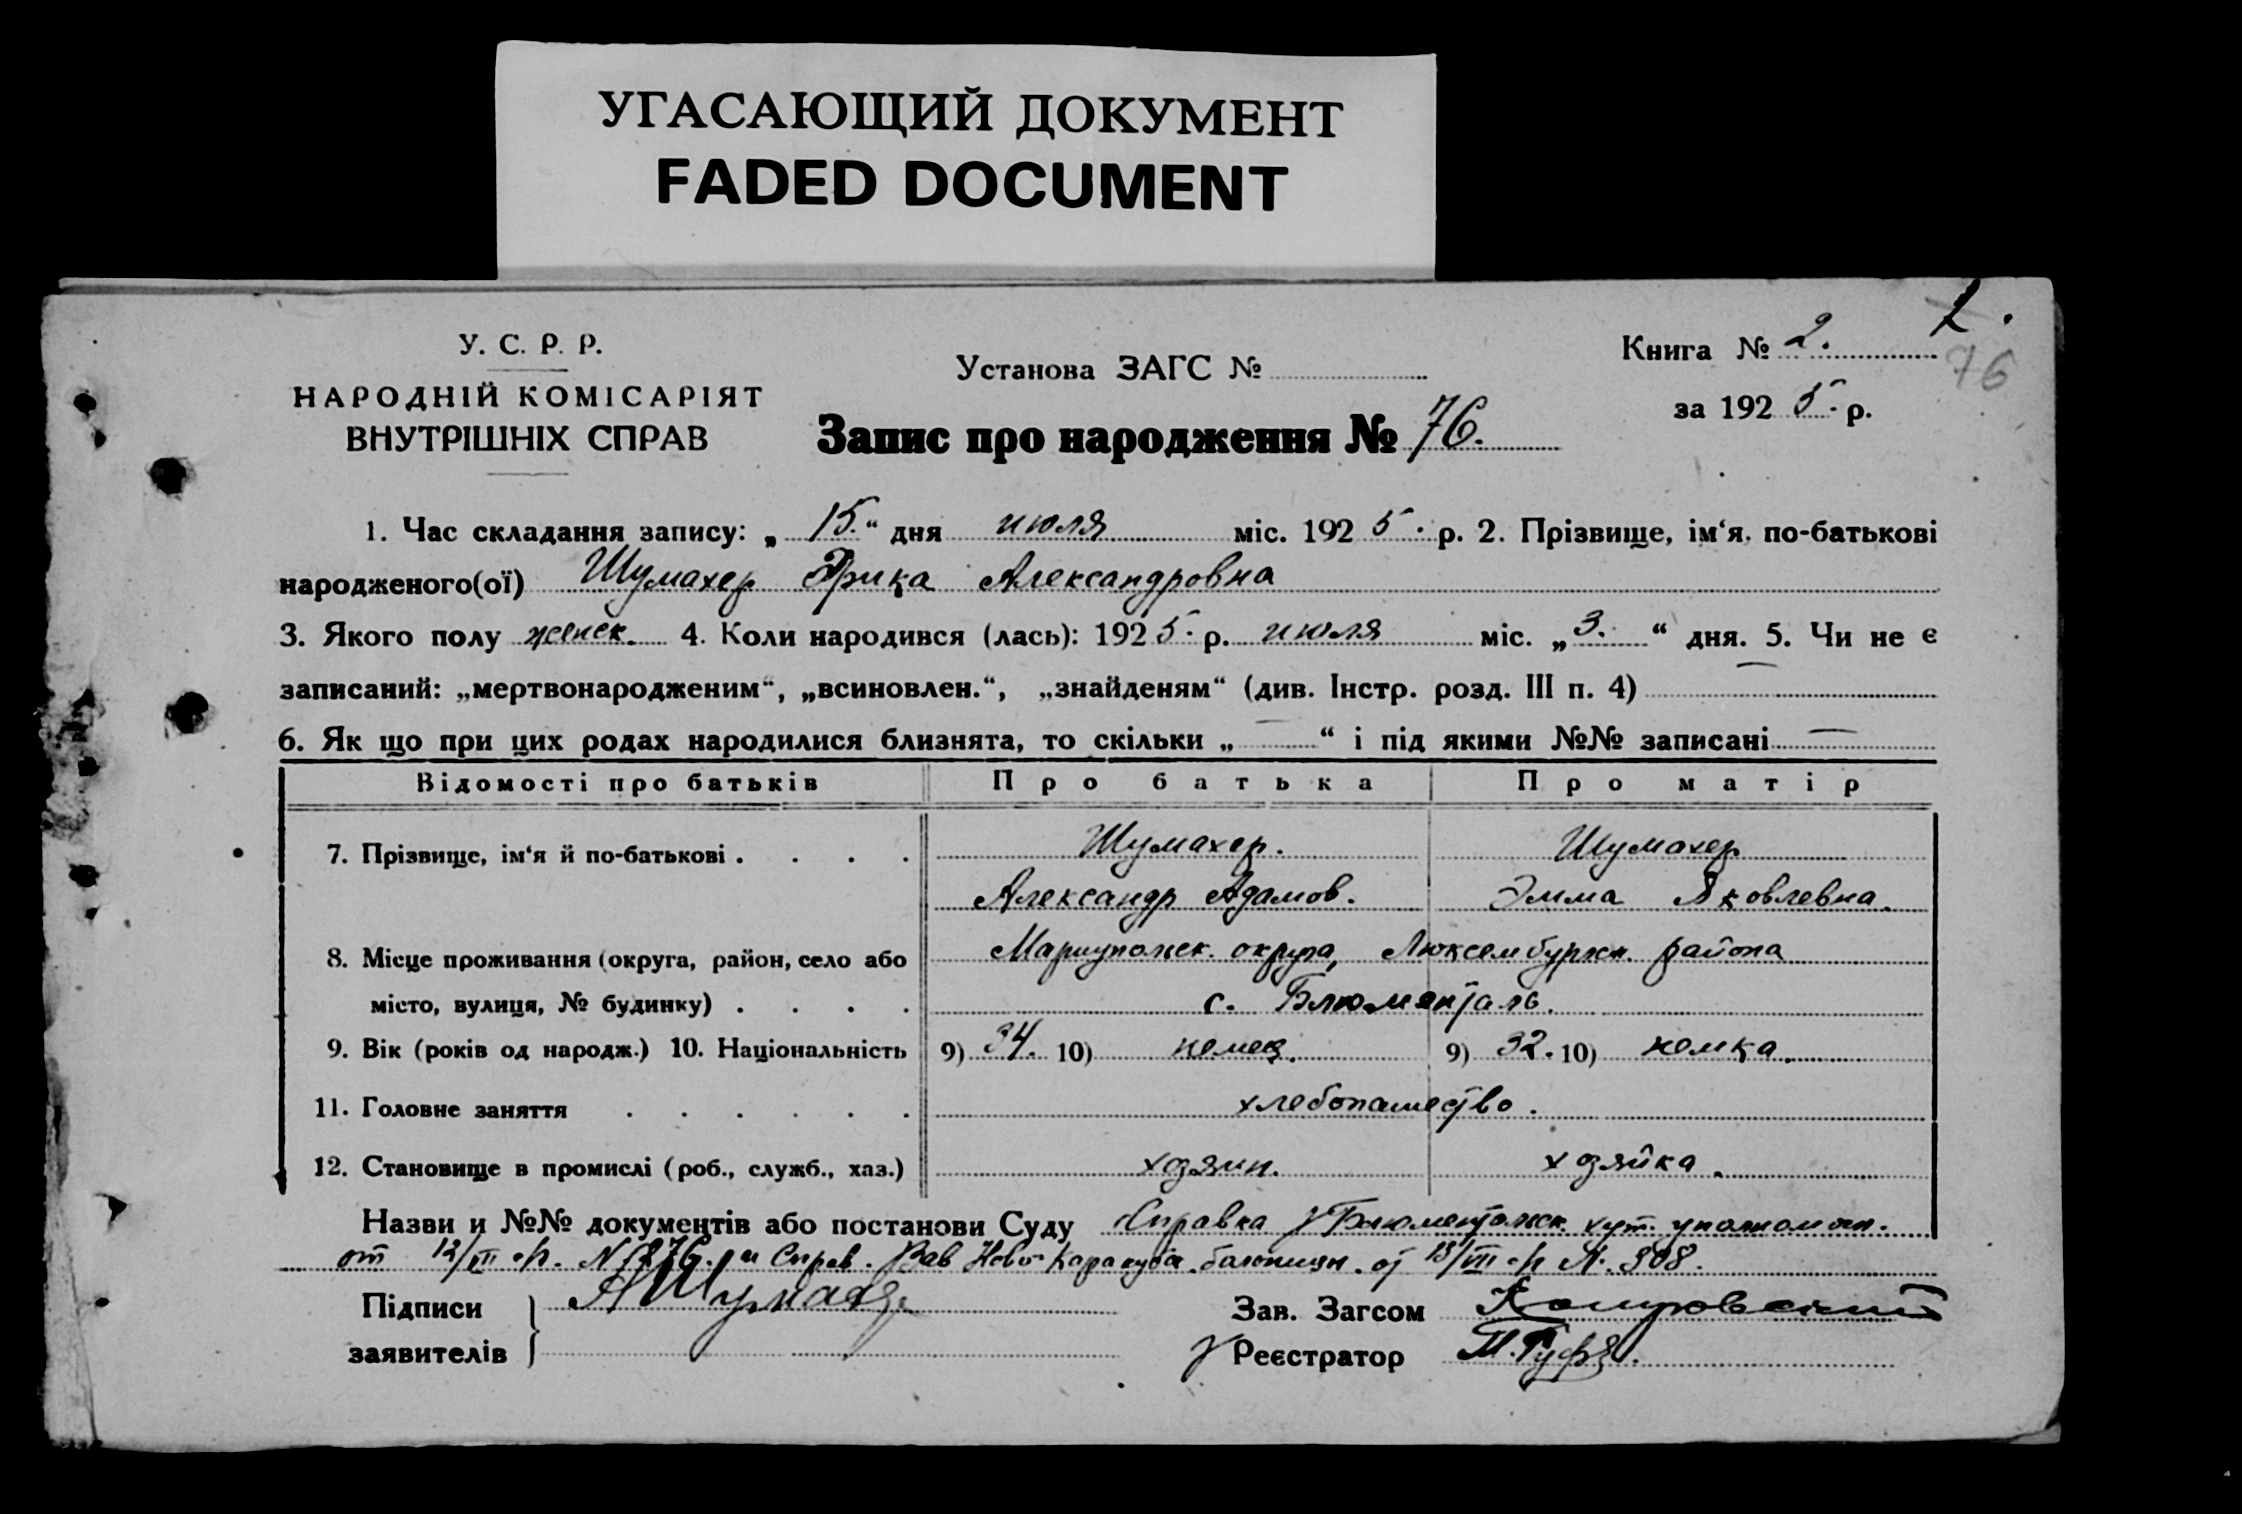 УГАСАЮЩИЙ ДОКУМЕНТ
FADED DOCUMENT
У. С. Р. Р.
НАРОДНІЙ КОМІСАРІЯТ
ВНУТРІШНІХ СПРАВ
Установа ЗАГС №
Книга № 2.
76
за 192 5. р.
Запис про народження № 76.
1. Час складання запису: „ 15. “ дня июля міс. 192 5. р. 2. Прізвище, ім‘я, по-батькові
народженого(ої) Шумахер Эрика Александровна
3. Якого полу женск. 4. Коли народився (лась): 192 5. р. июля міс. „ 3. “ дня. 5. Чи не є
записаний: „мертвонародженим“, „всиновлен.“, „знайденям“ (див. Інстр. розд. III п. 4) —
6. Як що при цих родах народилися близнята, то скільки „ — “ і під якими №№ записані —
Відомості про батьків Про батька Про матір
7. Прізвище, ім‘я й по-батькові . . . . Шумахер. Шумахер
Александр Адамов. Эмма Яковлевна.
8. Місце проживання (округа, район, село або Мариупольск. округа, Люксембургск. района
місто, вулиця, № будинку) . . . . с. Блюменталь.
9. Вік (років од народж.) 10. Національність 9) 34. 10) немец. 9) 32. 10) немка.
11. Головне заняття . . . . . . хлебопашество.
12. Становище в промислі (роб., служб., хаз.) хозяин. хозяйка.
Назви и №№ документів або постанови Суду Справка Блюментальск. хут. уполномоч.
от 12/VII с/г. N 276. и Справ. Зав Ново-Каракуба. от 13/VII с/г N. 308.
Підписи АШумахер
заявителів
Зав. Загсом
Реєстратор